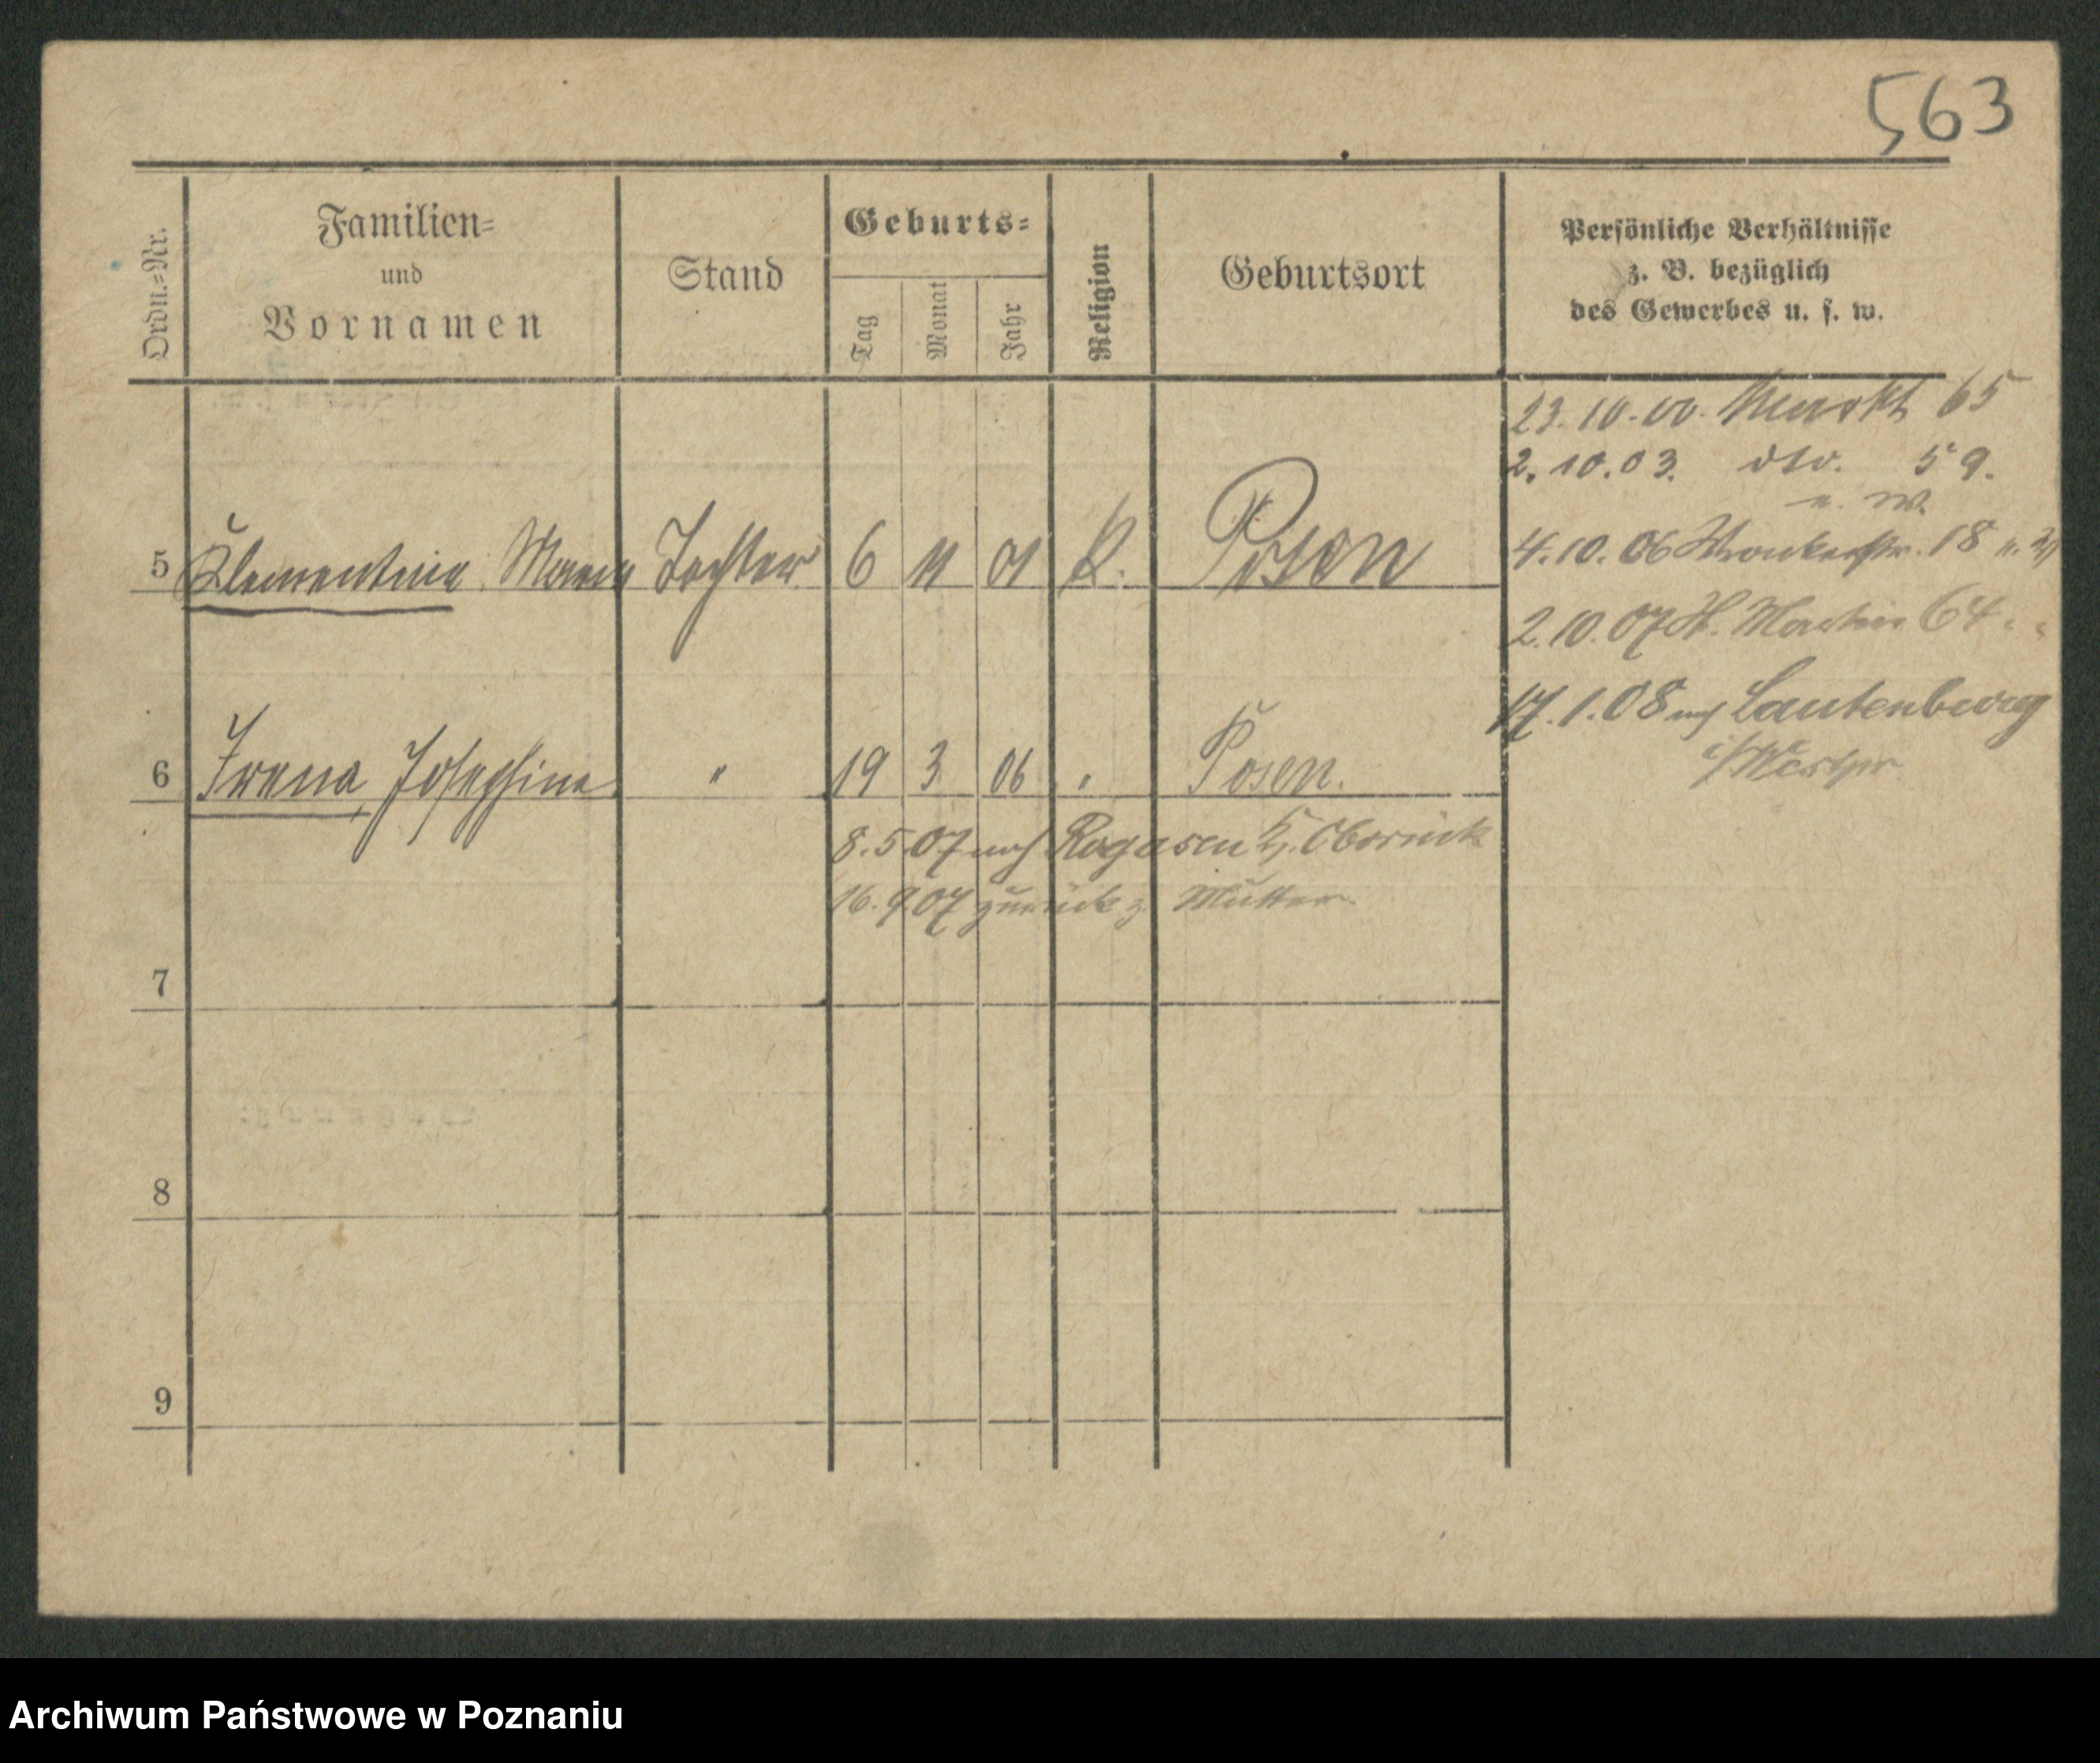 563
Ordn.=Nr.
Familien=
und
Vornamen
Stand
Geburts=
Tag
Monat
Jahr
Religion
Geburtsort
Persönliche Verhältnisse
z. B. bezüglich
des Gewerbes u. s. w.
23.10.00. Markt 65
2.10.03. dto. 59.
u. W.
4.10.06 Wronkerstr. 18
2.10.07 St. Martin 64
17.1.08 nach Lautenburg
i/Westpr.
5 Klementina Maria Tochter 6 11 01 K. Posen
6 Irena Josephina " 19 3 06 " Posen.
8.5.07 nach Rogasen Kr. Obornik
16.9.07 zurück z. Mutter.
7
8
9
Archiwum Państwowe w Poznaniu